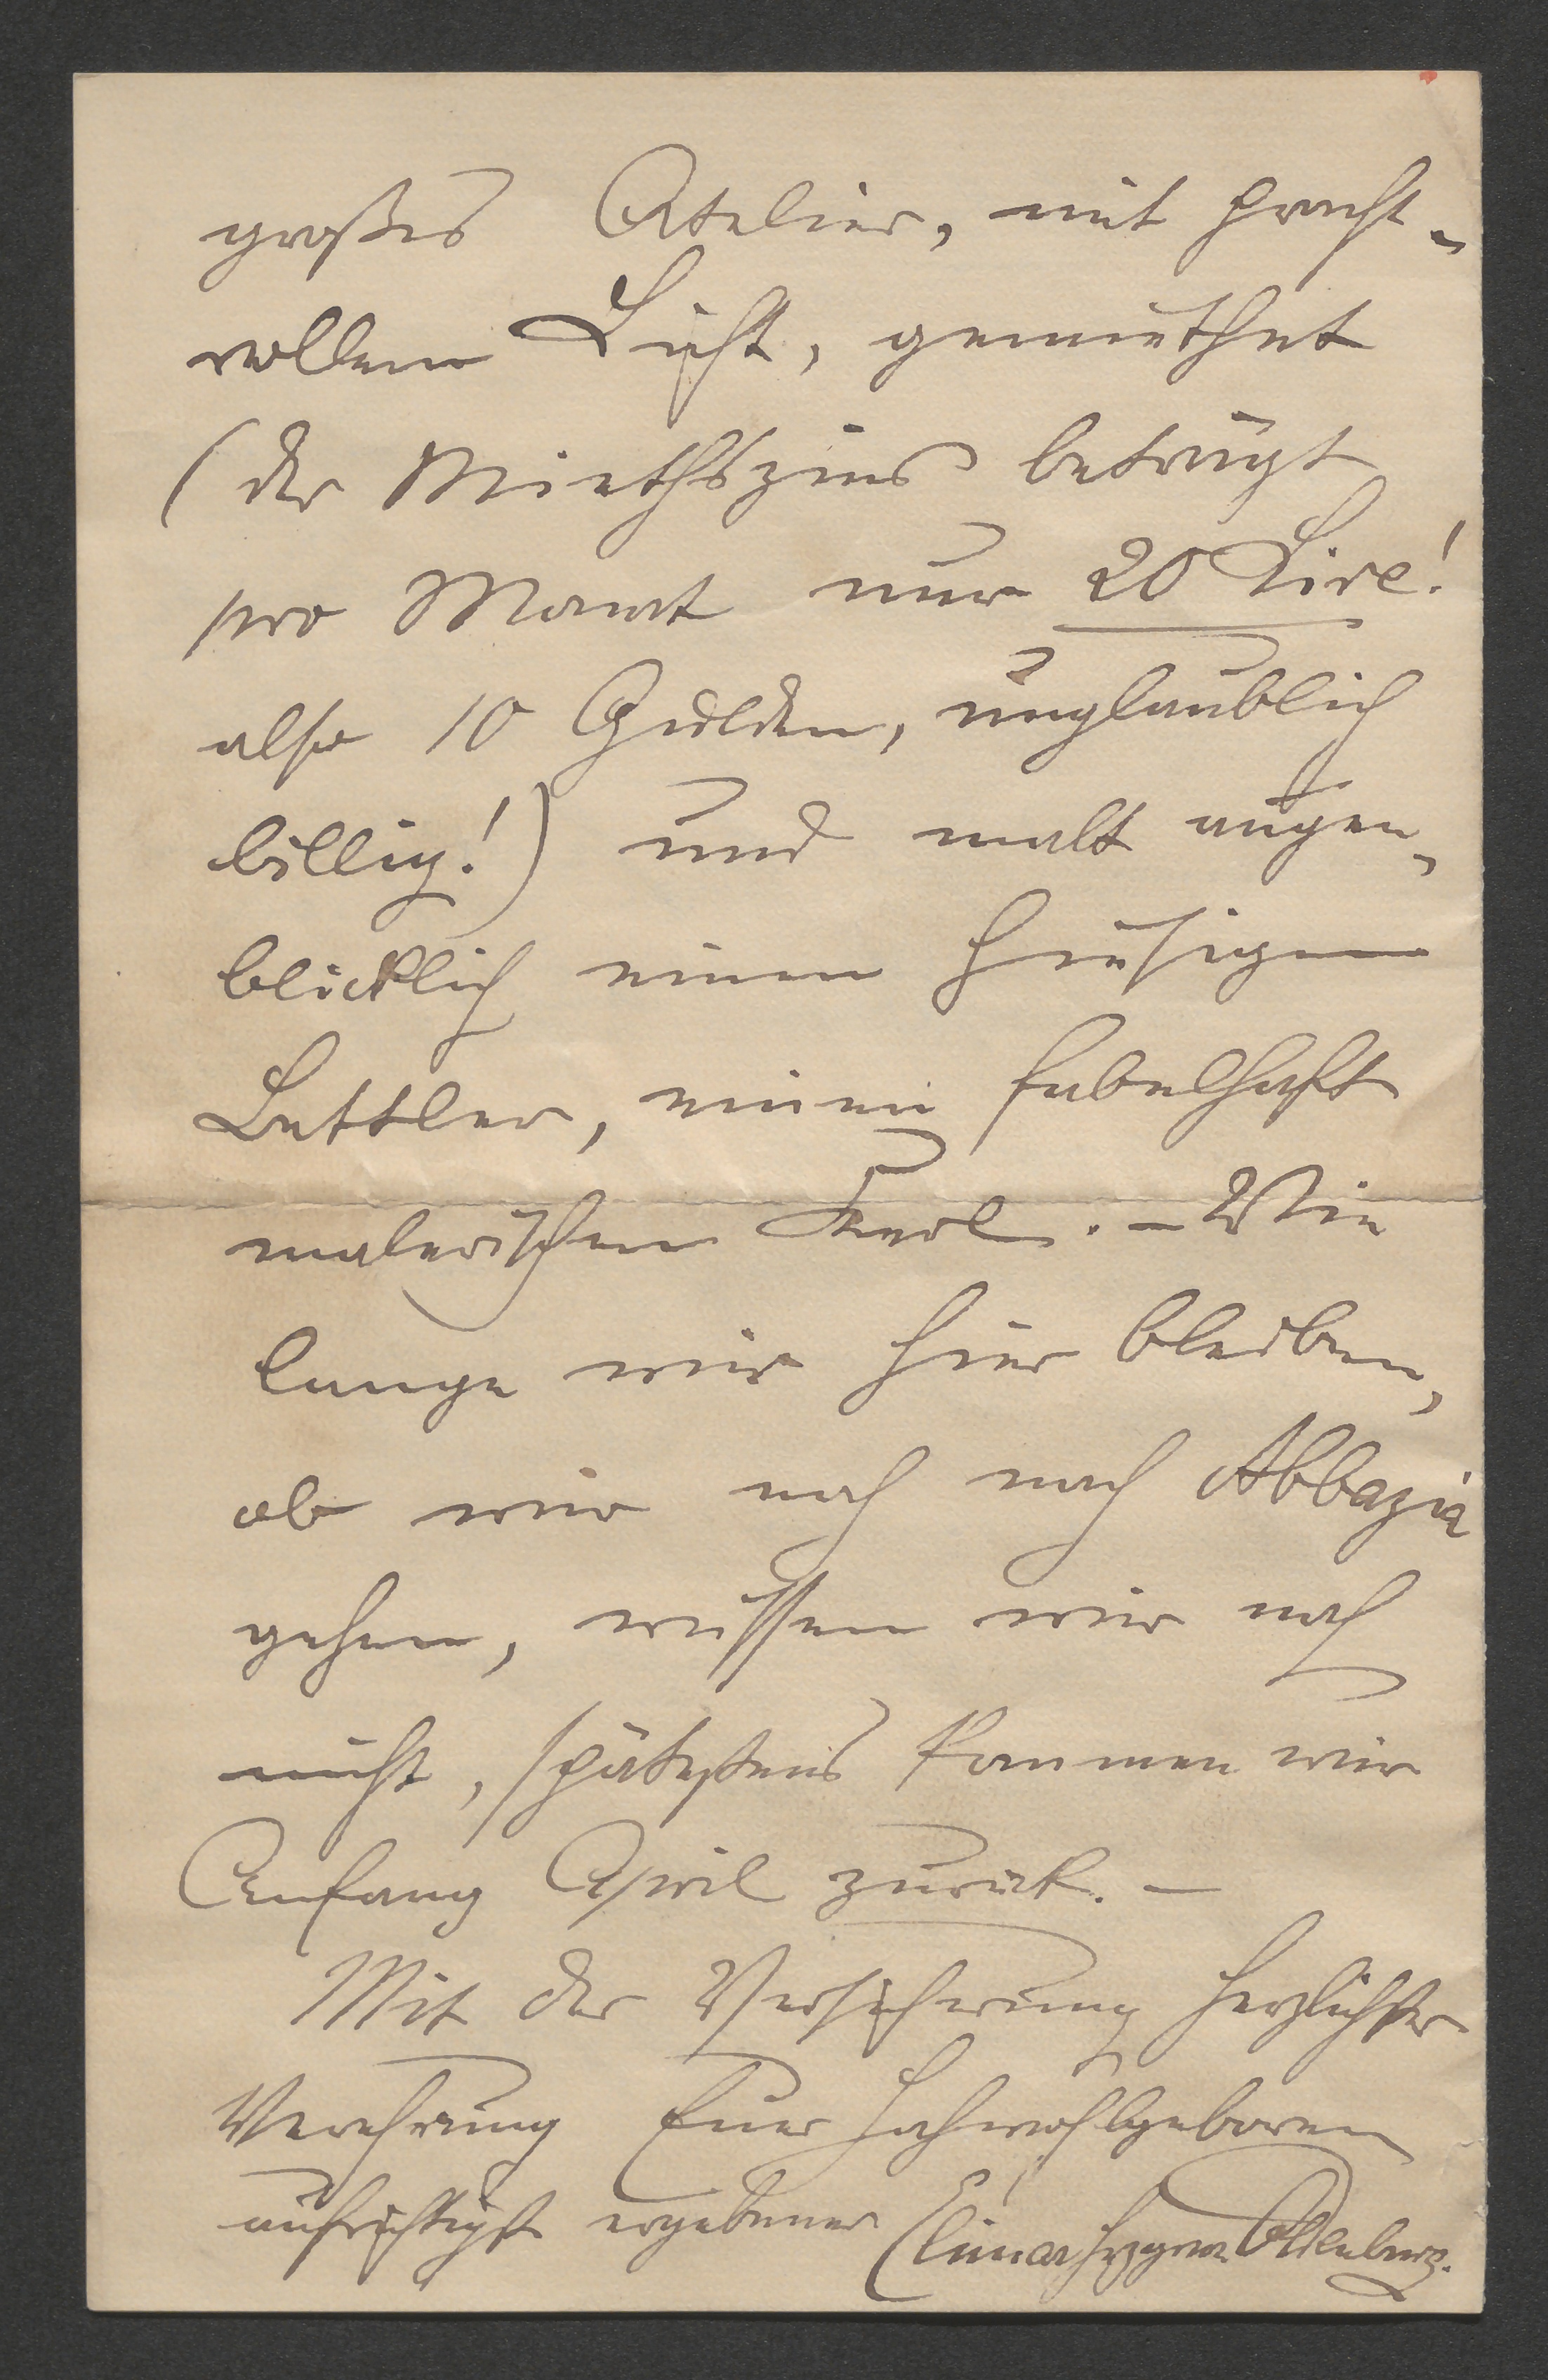 großes Atelier, mit pracht-
vollem Licht, gemiethet
(der Miethszins beträgt
pro Monat nur 20 Lire!
also 10 Gulden, unglaublich
billig!) und malt augen-
blicklich einen hiesigen
Bettler, einen fabelhaft
malerischen Kerl. – Wie
lange wir hier bleiben,
ob wir noch nach Abbazia
gehen, wissen wir noch
nicht, spätestens kommen wir
Anfang April zurück. –
Mit der Versicherung herzlichster
Verehrung Euer Hochwohlgeboren
aufrichtigst ergebener Elimar Hzg von Oldenburg.